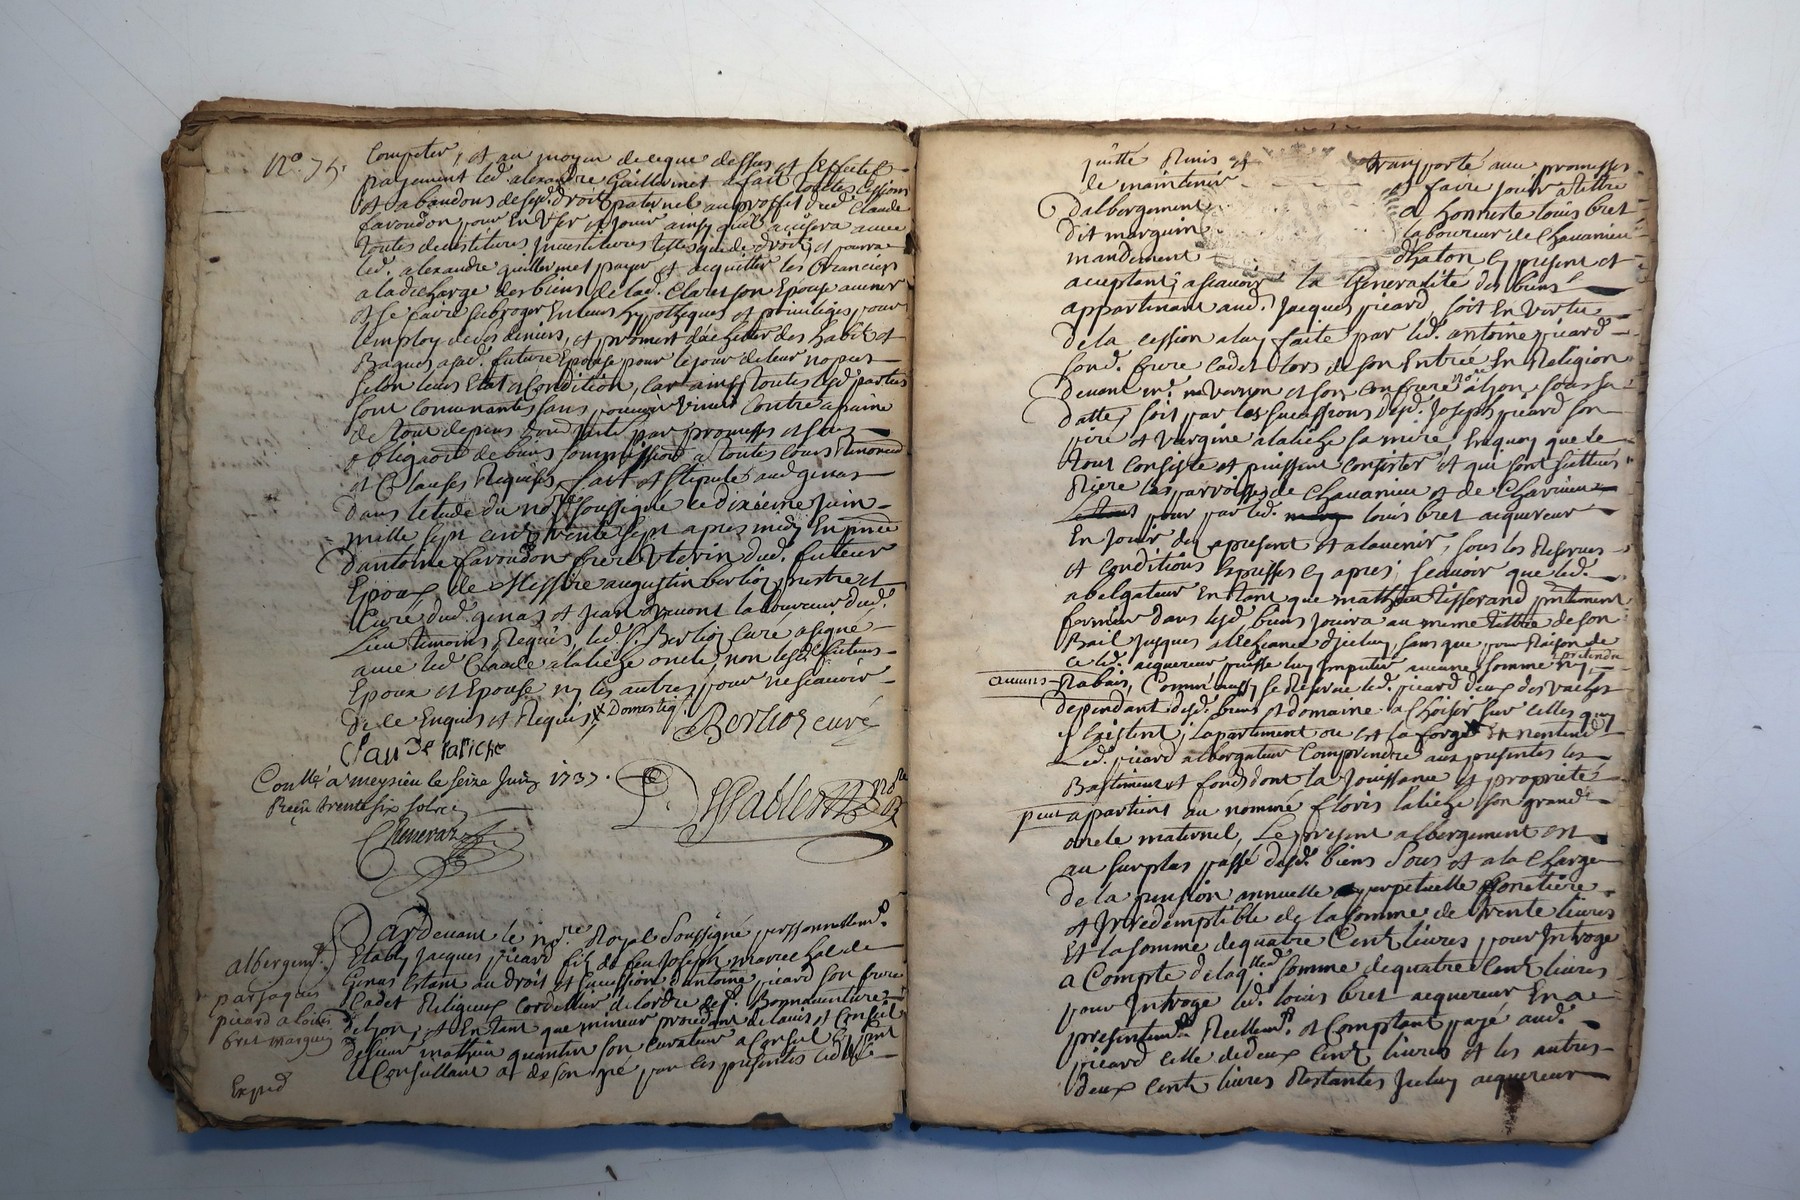 N.o 75.
Competer, et au moyen de ce que dessus et sus
payement led. alexandre Guillermet a fait toutes cessions
et abandons desd. droits paternels au proffit dud. Claude
favoudon pour en User et Jouir ainsy quil avisera avec
toutes devestitures Jnvestitures telles que de droit, et pourra
led. alexandre guillermet payer et acquitter les Creanciers
a la descharge des biens de lad. son Epouse avenir
et se faire subroger En leurs hypotheques et privileges pour
lemploy de ses deniers, et promet dachetter des habits et
Bagues a sad. future Epouse pour le jour de leur nopces
selon leurs Etat et Condition, Car ainsy toutes lesd. parties
sont Convenantes sans pouvoir Venir Contre a peine
de tous depens dont faite par promesses et
obligaons de biens soummissions a toutes Cours Renonced
et Clauses Requises, fait et stipulé aud. genas
dans letude du nore soussigné le dixieme Juin
mille sept cent trente sept apres midy En pnce
dantoine favoudon frere Uterin dud. futeur
Epoux, de Messire augustin berlioz prestre et
Curé dud. genas et Jean laboureur dud.
Lieu temoins Requis, led. Sr. Berlioz Curé a signé
avec led. Claude alatieze oncle, non lesd. futeurs
Epoux et Epouse ny les autres pour ne scavoir
de ce Enquis et Requis, Domestiq
Berlioz curé
Claude
Conllé a meysieu le seize Juin 1737.
Reçu trente six sols
Pardevant le nore. Royal soussigné personnellemt.
Establi Jacques picard fils de feu Joseph marechal de
Genas Estant au droit et succession dantoine picard son frere
Cadet Religieux Cordellier de lordre de St. Bonnaventure
de lyon, et En tant que mineur procedant de lavis et Conseil
de sieur mathieu quantin son Curateur a Conseil
le Conseillant de son gré par les presentes led
albergemt.
par jaques
picard a loüis
bret marguin
Exped
quitté Remis et transporté avec promesses
de maintenir et faire jouir a tiltre
dalbergement a honneste louis bret
dit marguin laboureur de Chavanieu
mandement dhaton Cy present et
aceptant; ascavoir la Generalité des biens
appartenant aud. Jacques picard, soit En Vertu
de la cession a luy faite par led. antoine picard
sond. frere cadet lors de son Entrée En Religion
devant Mr. Vernon et son confrere nore a lyon sous sa
datte, soit par les successions desd. Joseph picard son
pere et Virginie alatieze sa mere, En quoy que le
tout Consiste et puissent Consister et qui sont scittués
Riere les parroisses de Chavanieu et de Chavanieu
pour par led. louis bret acquereur
En Jouir des a present et a lavenir, sous les Reserves
et Conditions Expresses Cy apres; scavoir que led.
abelgateur En tant que mathieu tisserand pntement
fermier dans lesd. biens jouira au meme tiltre de son
Bail Jusques a lecheance diceluy, sans que pour Raison de
ce led. acquereur puisse luy Imputer aucune somme ny pretendre
aucuns Rabais, Comme aussy se Reserve led. picard deux des vaches
dependant desd. biens et domaine a Choisir sur celles quy
y Existent, lapartement ou est la forge et nentend
Led. picard albergateur Comprendre aux presentes les
Bastiment et fonds dont la Jouissance et proprieté
peut apartenir au nommé floris latieze son grand
oncle maternel, Le present albergement est
au surplus passé desd. biens sous et a la Charge
de la pension annuelle perpetuelle foncière
et Jrredemptible de la somme de trente livres
Et la somme de quatre Cent livres pour Introge
a Compte de laqlle. somme de quatre Cent livres
pour Introge led. louis bret acquereur En a
presentemt. Reellemt. et Comptant payé aud.
picard celle de deux Cent livres et les autres
deux Cent livres Restantes Jceluy acquereur